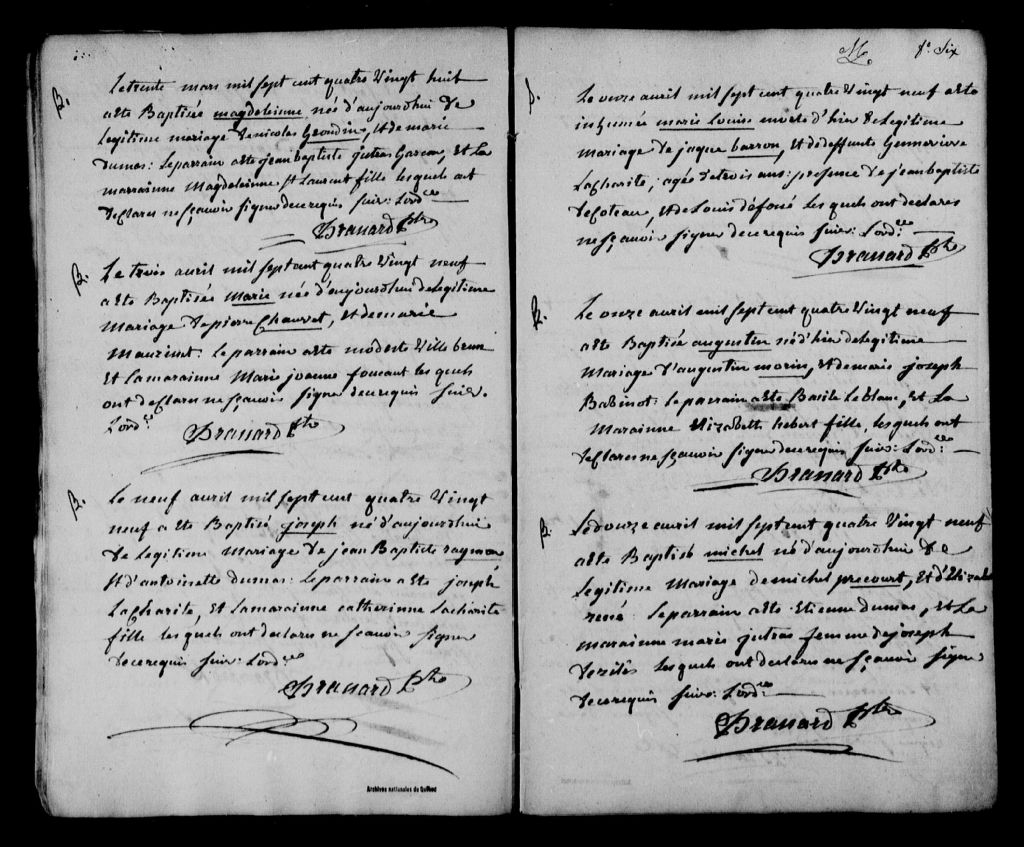 B.
Le trente mars mil sept cent quatre Vingt huit
a ete Baptisée magdeleinne née d'aujourd'hui de
Legitime mariage de nicolas Geoudin, et de marie
dumas: le parrain a ete jean baptiste jutras Garcon, et La
marrainne Magdeleinne St Laurent fille lesquels ont
declarer ne sçauoir signer de ce requis suiv: Lord.ce
Dranard Ptre
B.
Le trois auril mil sept cent quatre Vingt neuf
a ete Baptisée Marie née d'aujourd'hui de legitime
Mariage de pierre Chauvet, et de marie
le parrain a ete modeste Ville brun
et La marainne Marie joanne foucaut lesquels
ont declarer ne sçauoir signer de ce requis suiv.
Lord.ce
Dranard Ptre
B.
Le neuf auril mil sept cent quatre Vingt
neuf a ete Baptisé joseph né d'aujourd'hui
de Legitime Mariage de jean Baptiste raymon
et d'antoinette dumas: le parrain a ete joseph
Lacharite, et La marainne catherinne Lacharite
fille lesquels ont declarer ne sçauoir signer
de ce requis suiv: Lord.ce
Dranard Ptre
Archives nationales du Québec
f.o Six
S.
Le onze auril mil sept cent quatre Vingt neuf a ete
inhumée marie Louise morte d'hier de Legitime
mariage de jaque barron, et de deffunte Genneviève
Lacharite; agée de trois ans: presence de jean baptiste
decoteau, et de Louis défossé lesquels ont declarer
ne sçauoir signer de ce requis suiv: Lord.ce
Dranard Ptre
B.
Le onze auril mil sept cent quatre Vingt neuf
a ete Baptisé augustin né d'hier de legitime
Mariage d'augustin morin, et de marie joseph
Babinot: le parrain a ete Basile Le blanc, et La
Marainne Elizabeth hebert fille, lesquels ont
declarer ne sçauoir signer de ce requis suiv: Lord.ce
Dranard Ptre
B.
Le douze auril mil sept cent quatre Vingt neuf
a ete Baptisé michel né d'aujourd'hui de
Legitime Mariage de michel precourt, et d'Elizabet
rené: le parrain a ete Etienne dumas, et La
marainne marie jutras femme de joseph
lesquels ont declarer ne sçauoir signer
de ce requis suiv: Lord.ce
Dranard Ptre